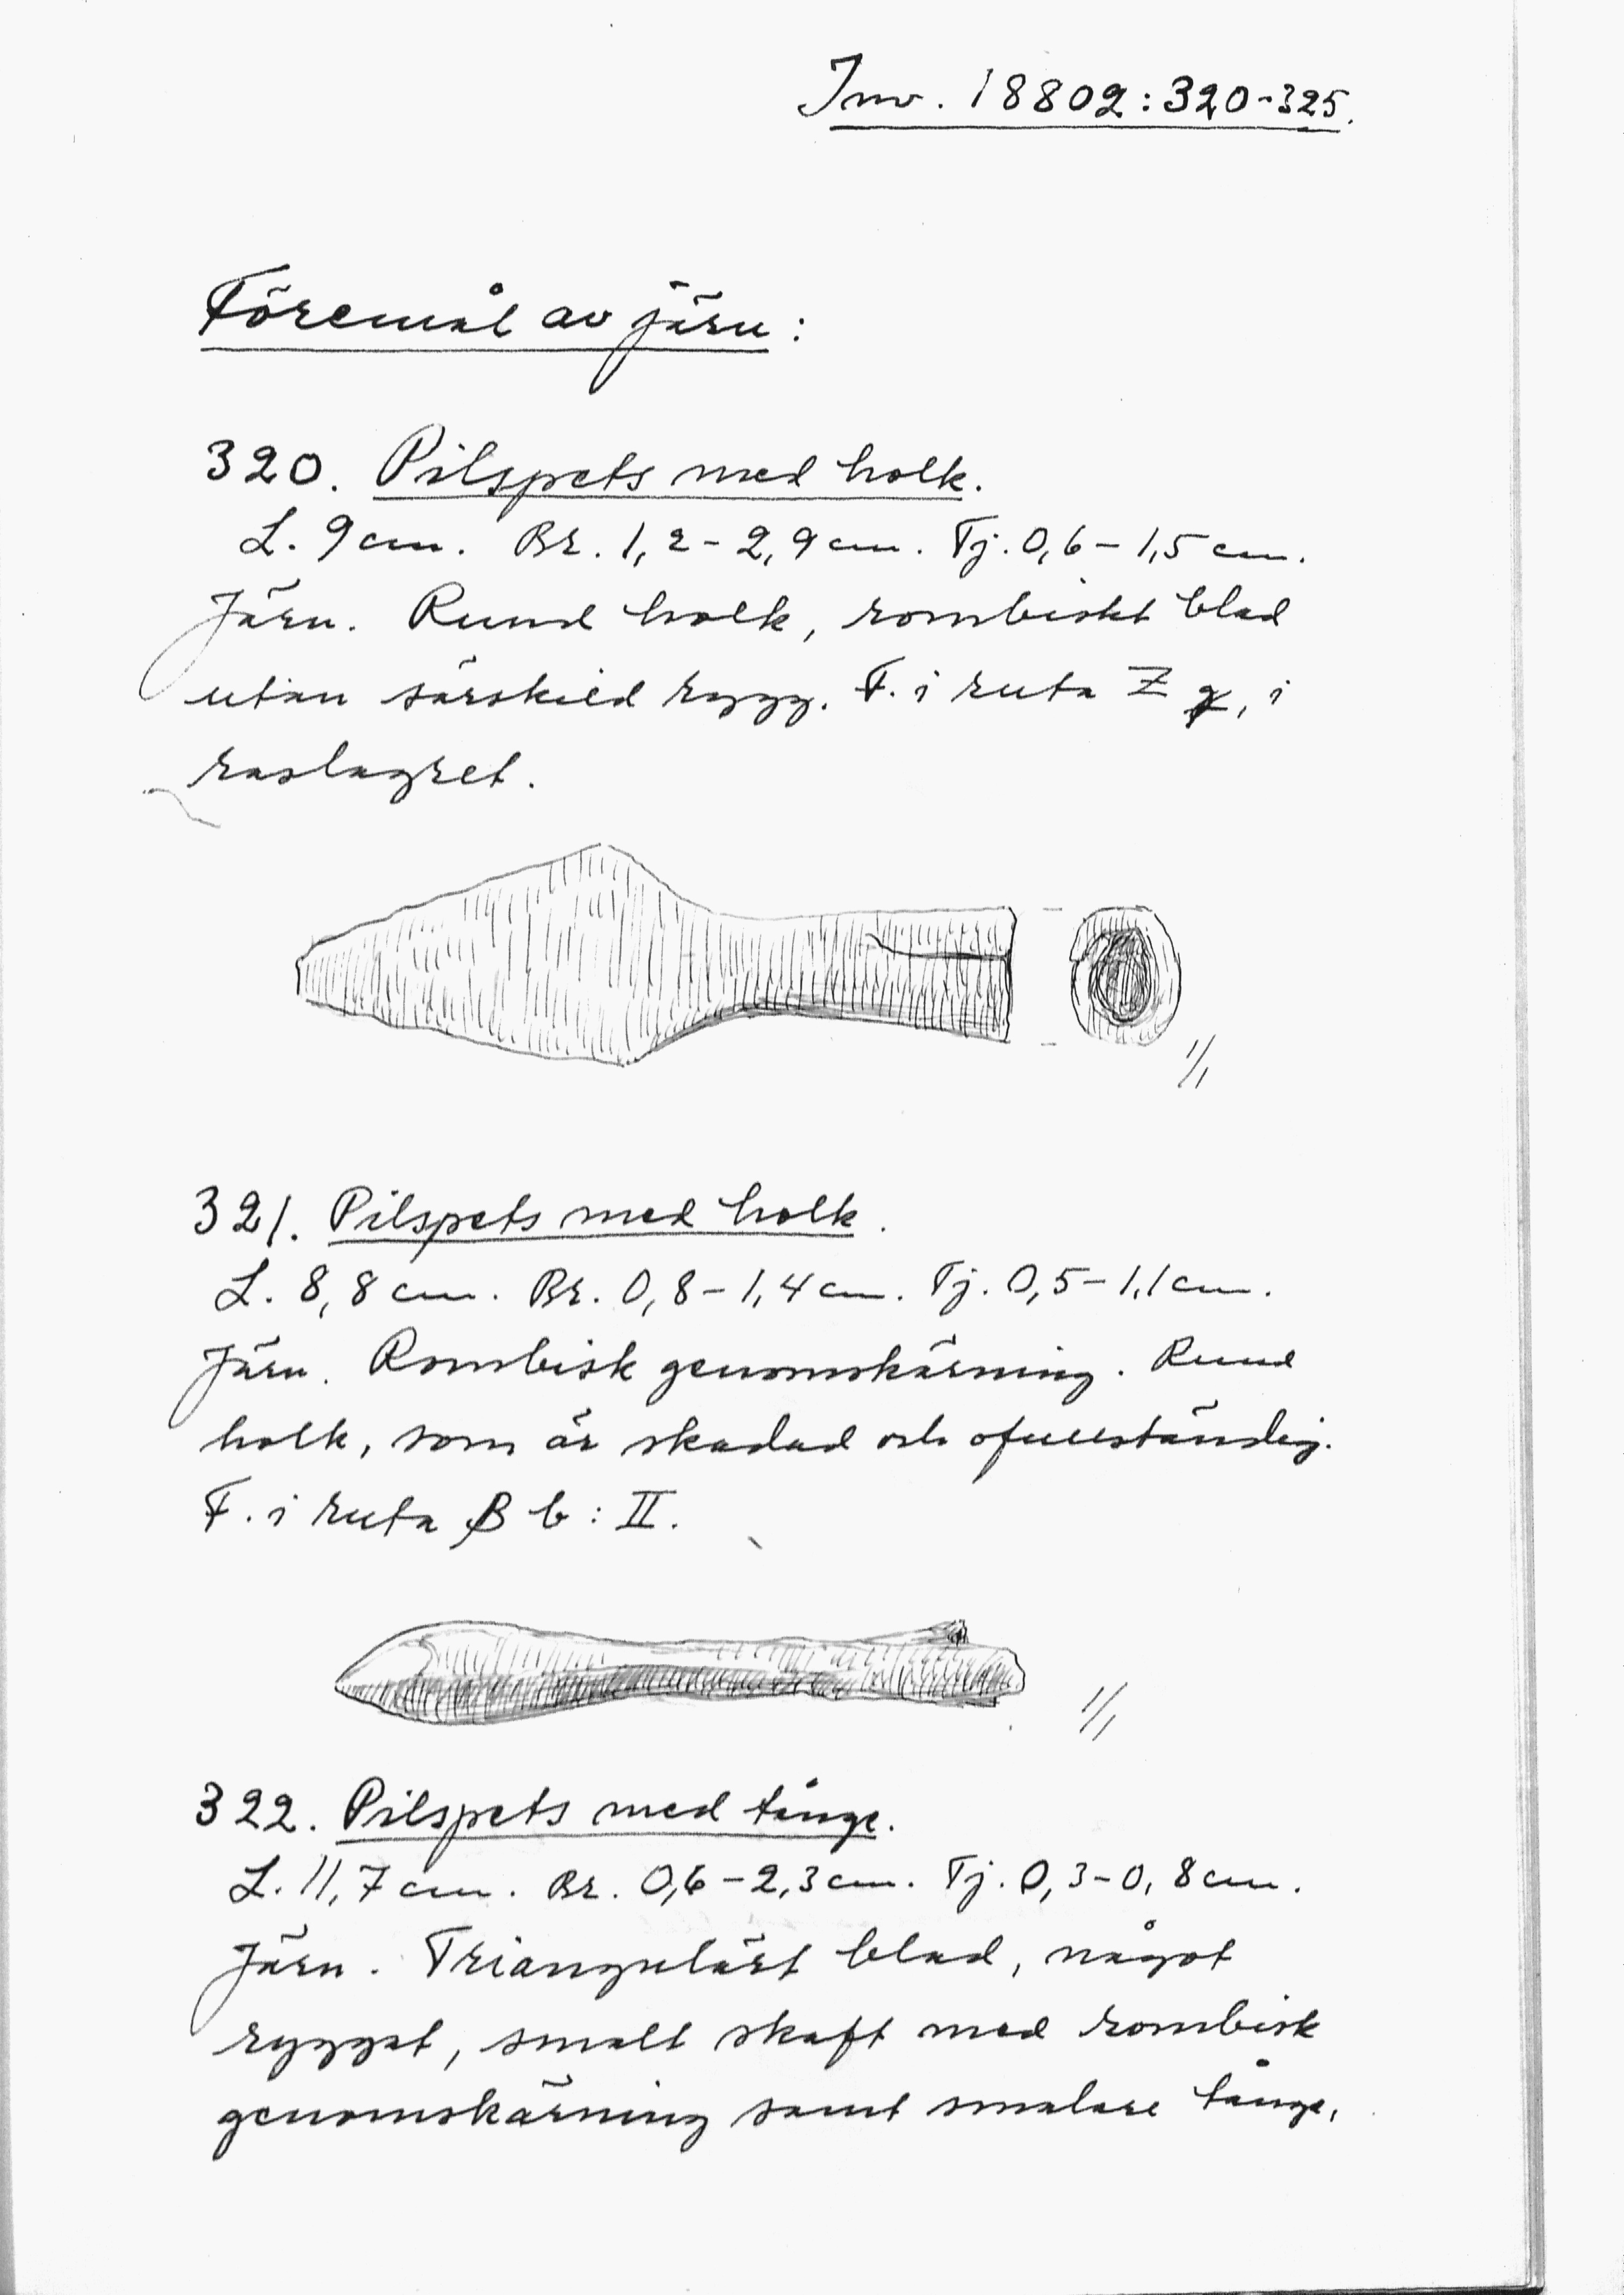 Inv. 18802:320-325.
Föremål av järn:
320. Pilspets med holk.
L. 9 cm. Br. 1,2-2,9 cm. Tj. 0,6-1,5 cm.
Järn. Rund holk, rombiskt blad
utan särskild rygg. F. i ruta Z g, i
raslagret.
1/1
321. Pilspets med holk.
L. 8,8 cm. Br. 0,8-1,4 cm. Tj. 0,5-1,1 cm.
Järn. Rombisk genomskärning. Rund
holk, som är skadad och ofullständig.
F. i ruta B b: II.
1/1
322. Pilspets med tånge.
L. 11,7 cm. Br. 0,6-2,3 cm. Tj. 0,3-0,8 cm.
Järn. Triangulärt blad, något
ryggat, smalt skaft med rombisk
genomskärning samt smalare tånge,